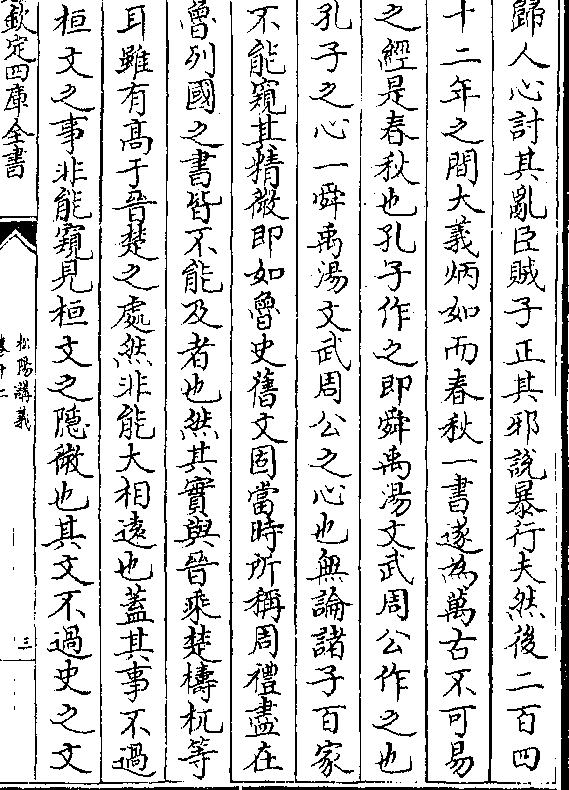 歸人心討其亂臣賊子正其邪説暴行夫然後二百四
十二年之間大義炳如而春秋一書遂為萬古不可易
之經是春秋也孔子作之即舜禹湯文武周公作之也
孔子之心一舜禹湯文武周公之心也無論諸子百家
不能窺其精微即如魯史舊文固當時所稱周禮盡在
魯列國之書皆不能及者也然其實與晉乘楚檮杌等
耳雖有髙于晉楚之處然非能大相遠也蓋其事不過
桓文之事非能窺見桓文之隱微也其文不過史之文
欽定四庫全書
松陽講義
卷十二
三